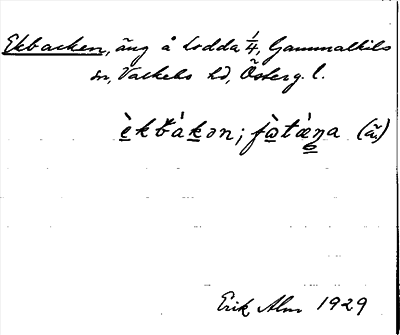 Ekbacken, äng å Lodda 1/4, Gammalkils
sn, Valkebo hd, Österg. l.
è̱kbák̠ən; fà̱táŋa (ä.)
Erik Alm 1929